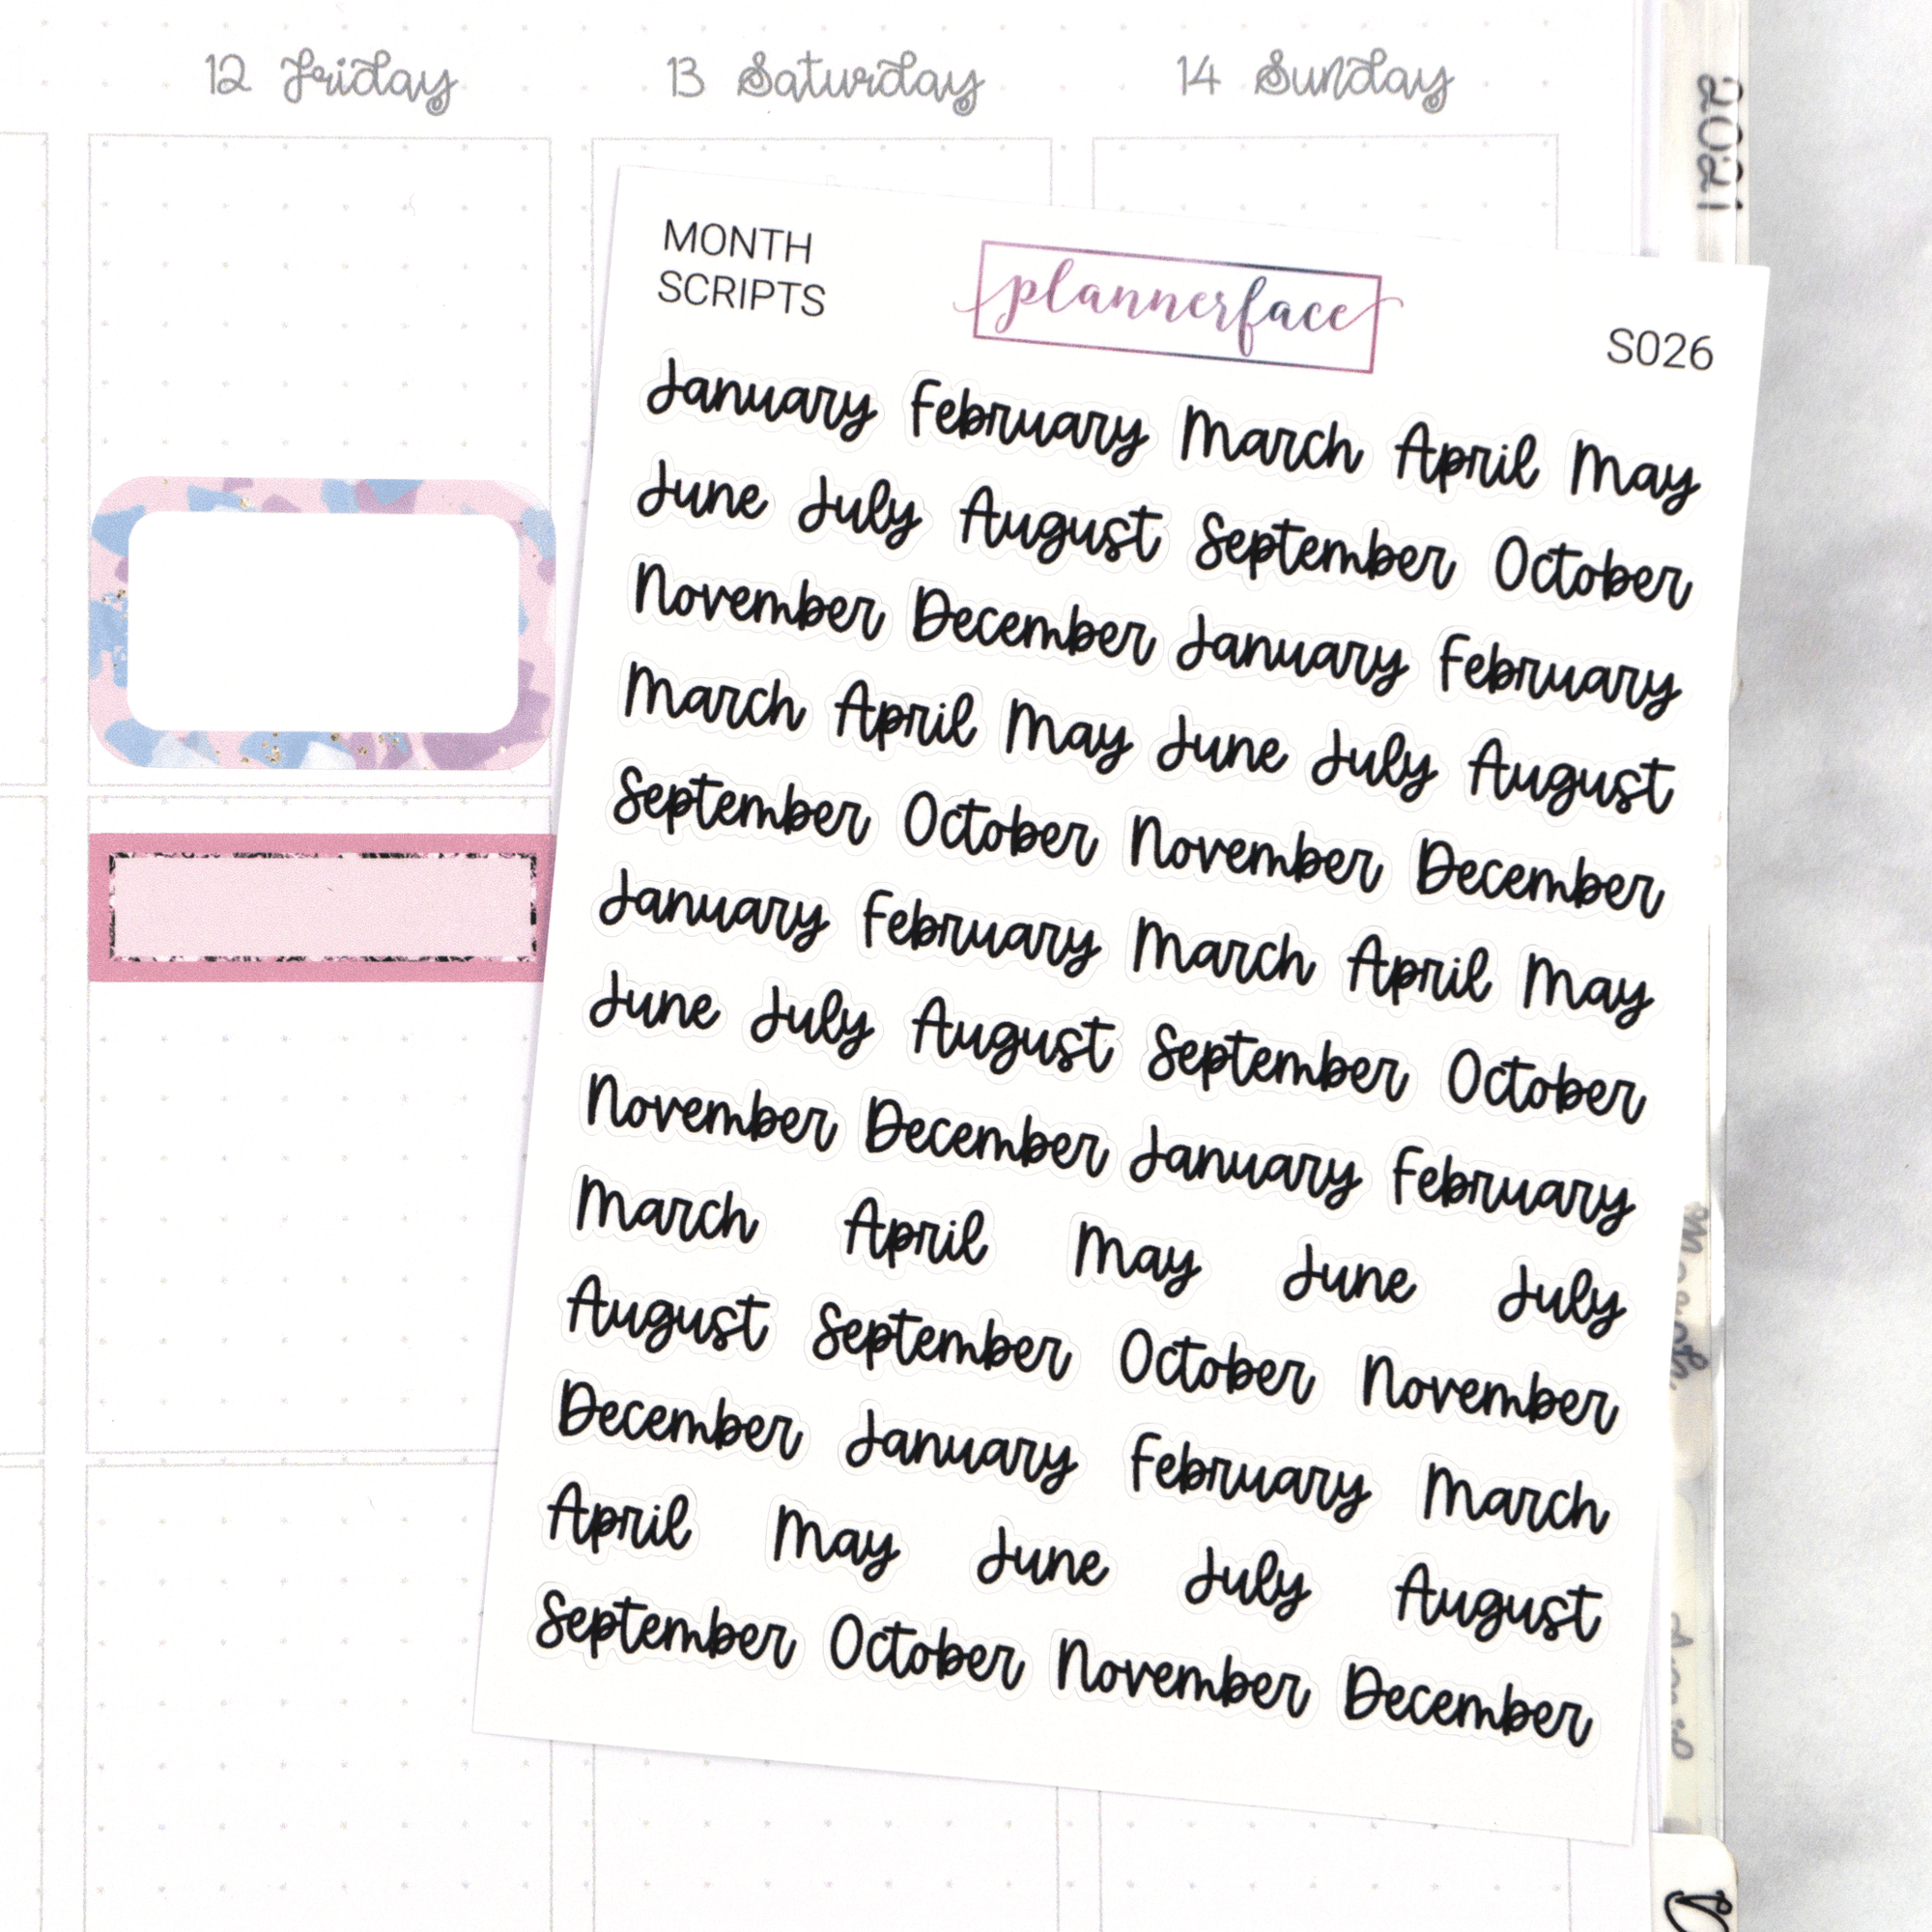 12 Friday
13 Saturday
14 Sunday
2021
MONTH
SCRIPTS
plannerface
S026
January February March April May
June July August September October
November December January February
March April May June July August
September October November December
January February March April May
June July August September October
November December January February
March April May June July
August September October November
December January February March
April May June July August
September October November December
March
April